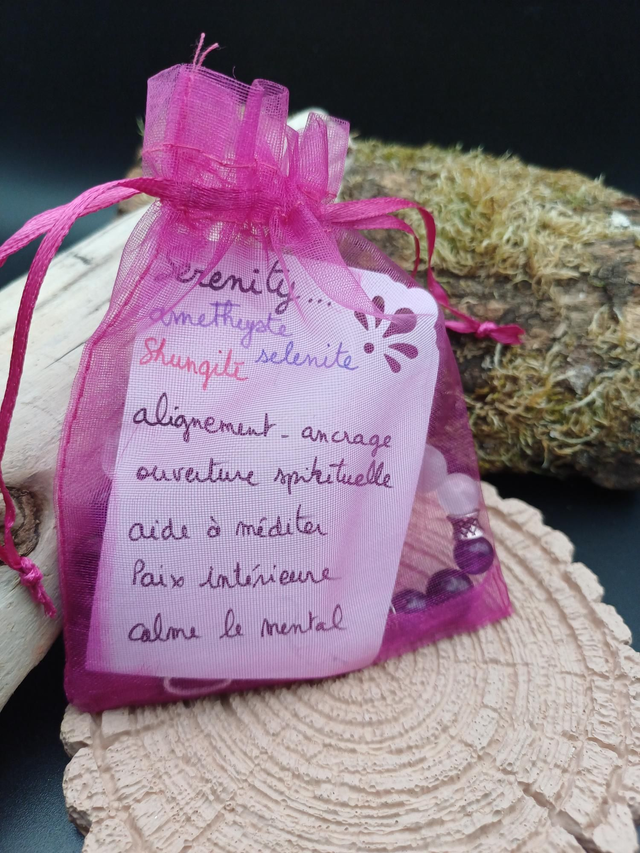 Serenity...
améthyste
Shungite selenite
alignement - ancrage
ouverture spirituelle
aide à méditer
Paix intérieure
calme le mental